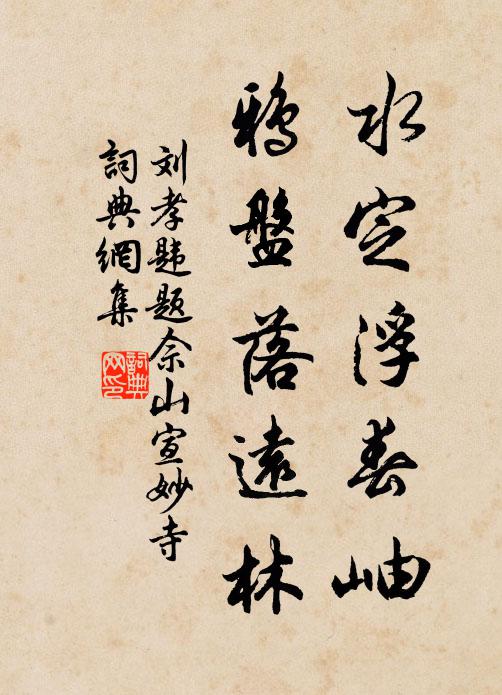 水定浮春岫
鸦盤落遠林
刘孝韪题佘山宣妙寺
詞典網集
詞典网印